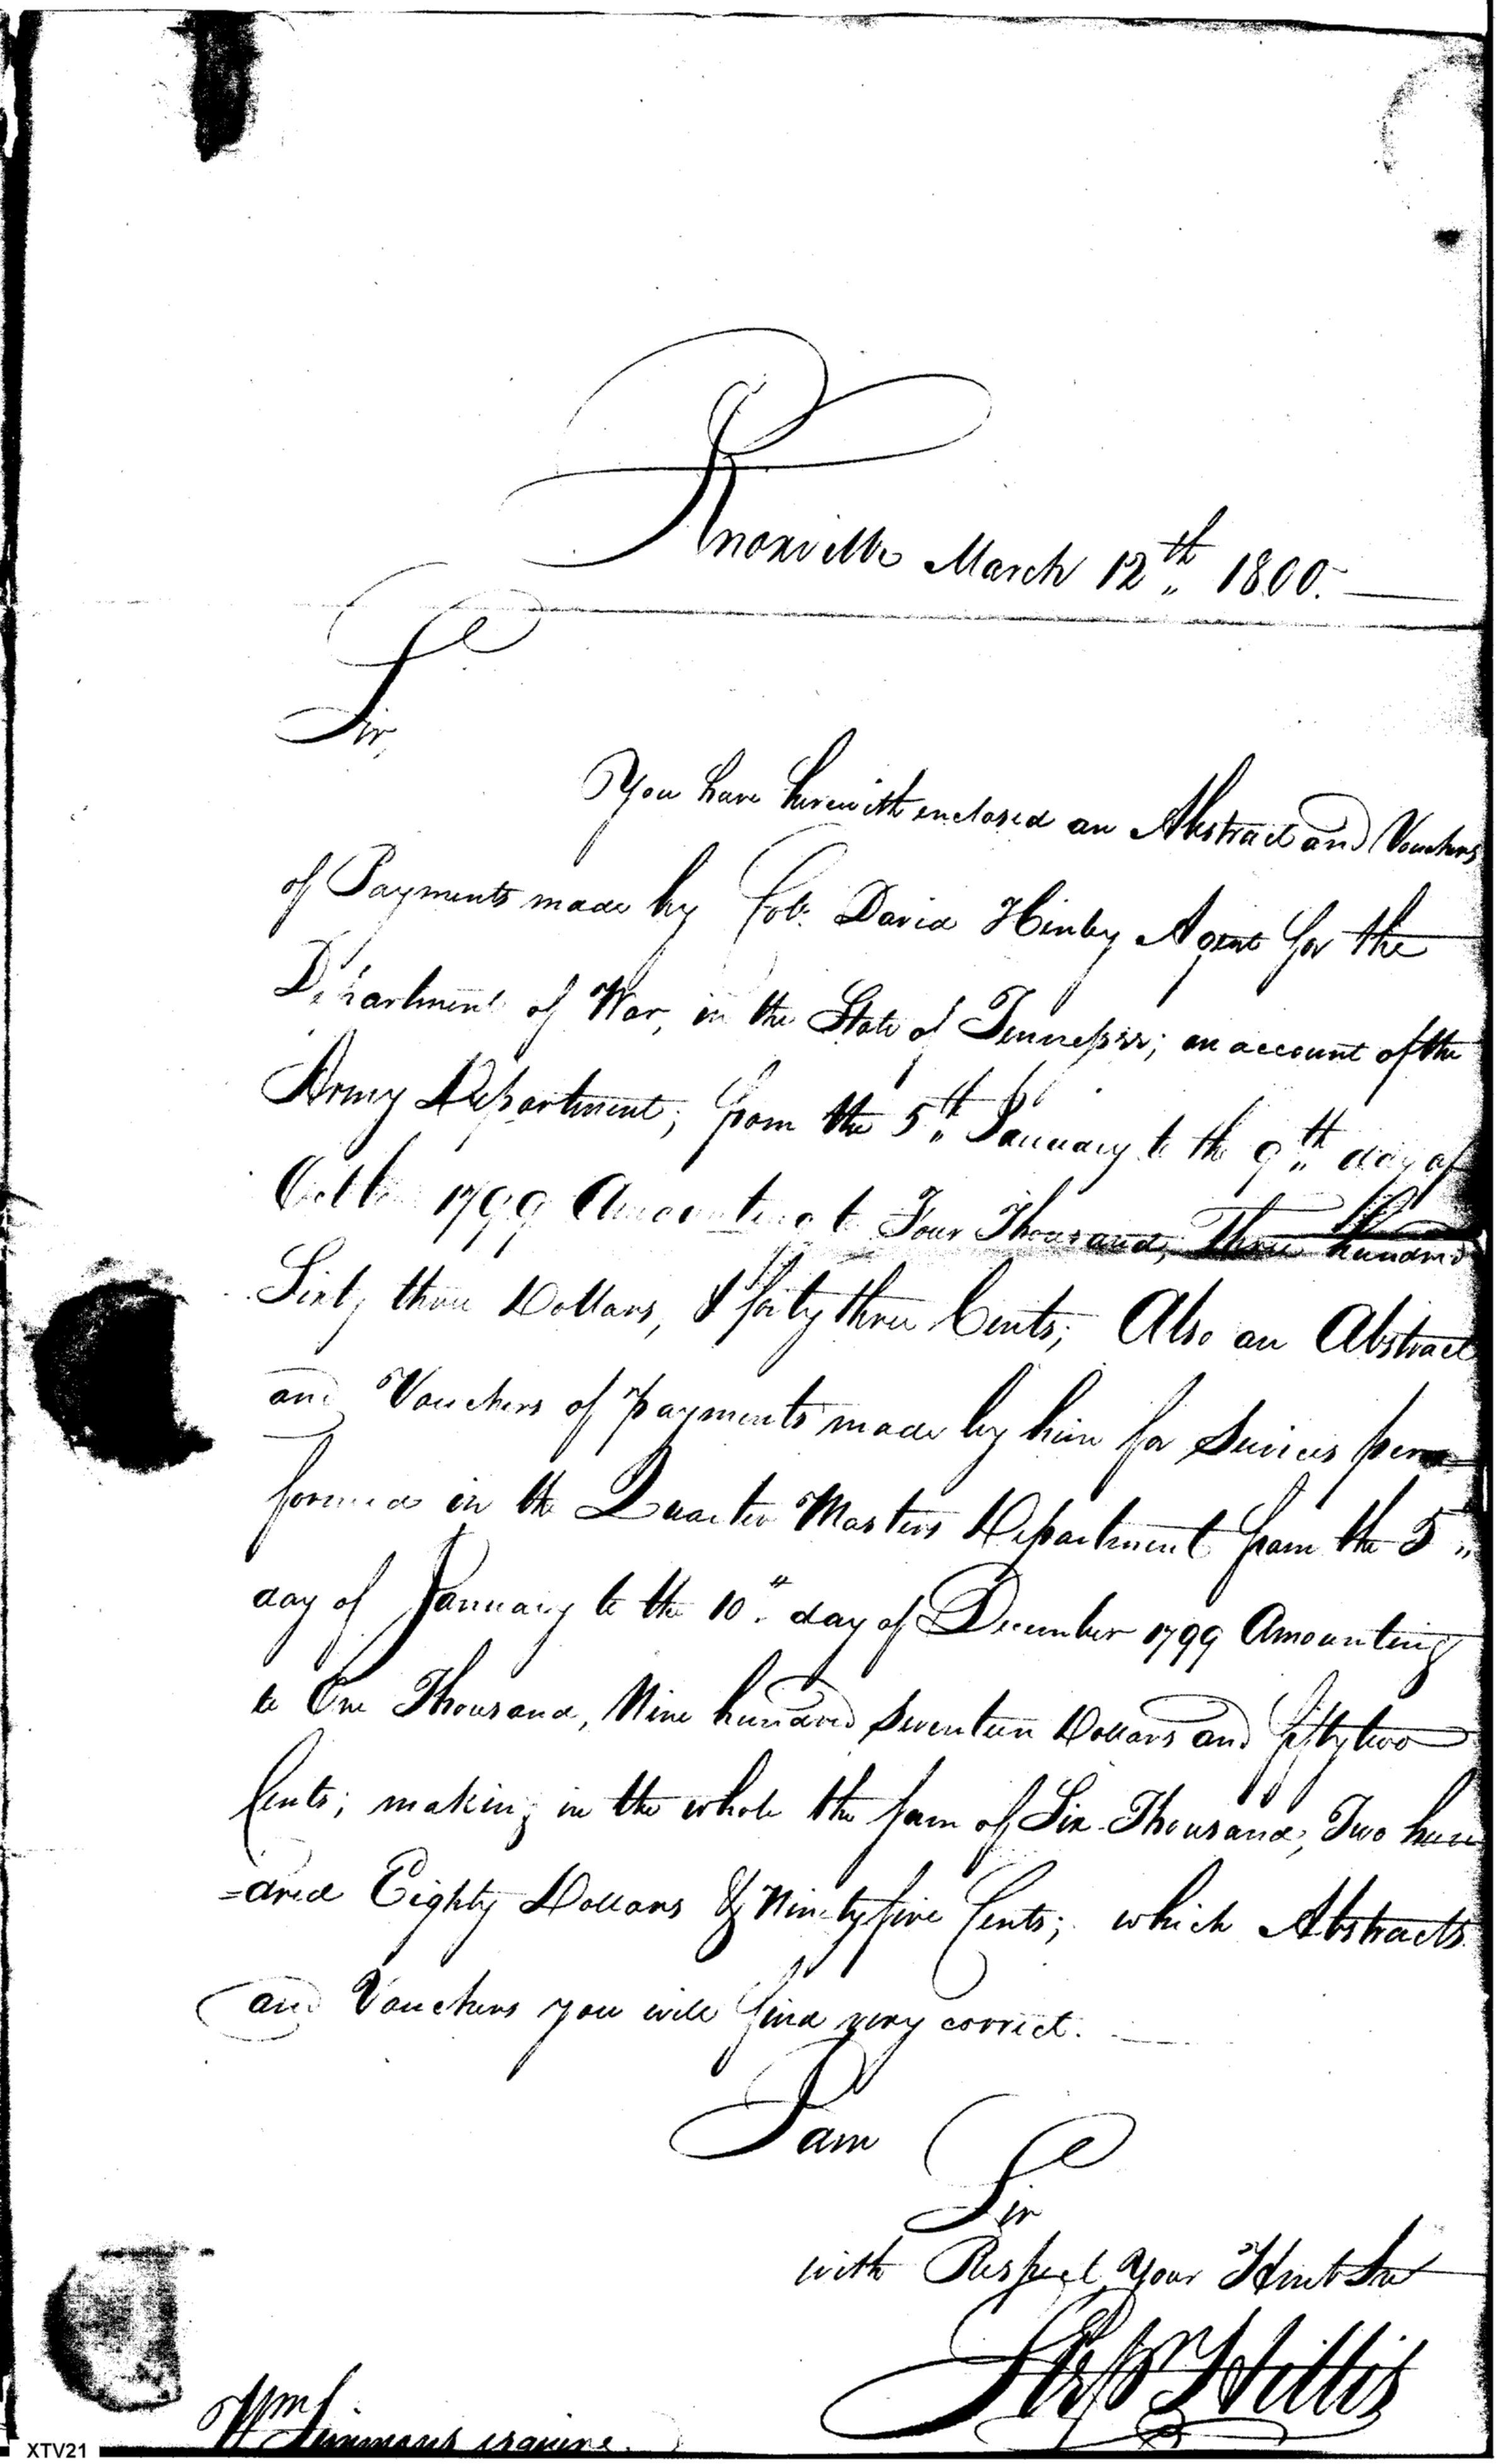 Knoxville March 12th 1800.
Sir,
You have herewith enclosed an Abstract and Vouchers
of Payments made by Col. David Henley Agent for the
Department of War, in the State of Tennessee; on account of the
Army Department; from the 5th January to the 9th day of
October 1799 Amounting to Four Thousand, Three hundred
Sixty three Dollars, & forty three Cents; Also an Abstract
and Vouchers of payments made by him for Services per=
formed in the Quarter Masters Department from the 5th
day of January to the 10th day of December 1799 Amounting
to One Thousand, Nine hundred Seventeen Dollars and fifty two
Cents; making in the whole the sum of Six Thousand, Two hun
=dred Eighty Dollars & Ninety five Cents; which Abstracts
and Vouchers you will find very correct.
I am
Sir
with Respect Your Hmbt Sert
Hillis
Wm Simmons esquire.
XTV21